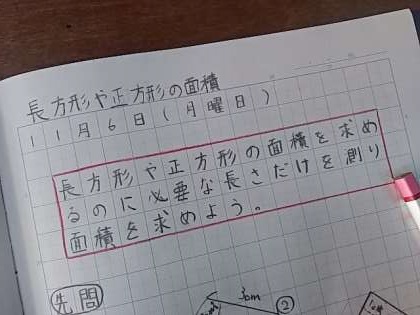 長方形や正方形の面積
11月6日(月曜日)
長方形や正方形の面積を求め
るのに必要な長さだけを測り
面積を求めよう。
先問
②